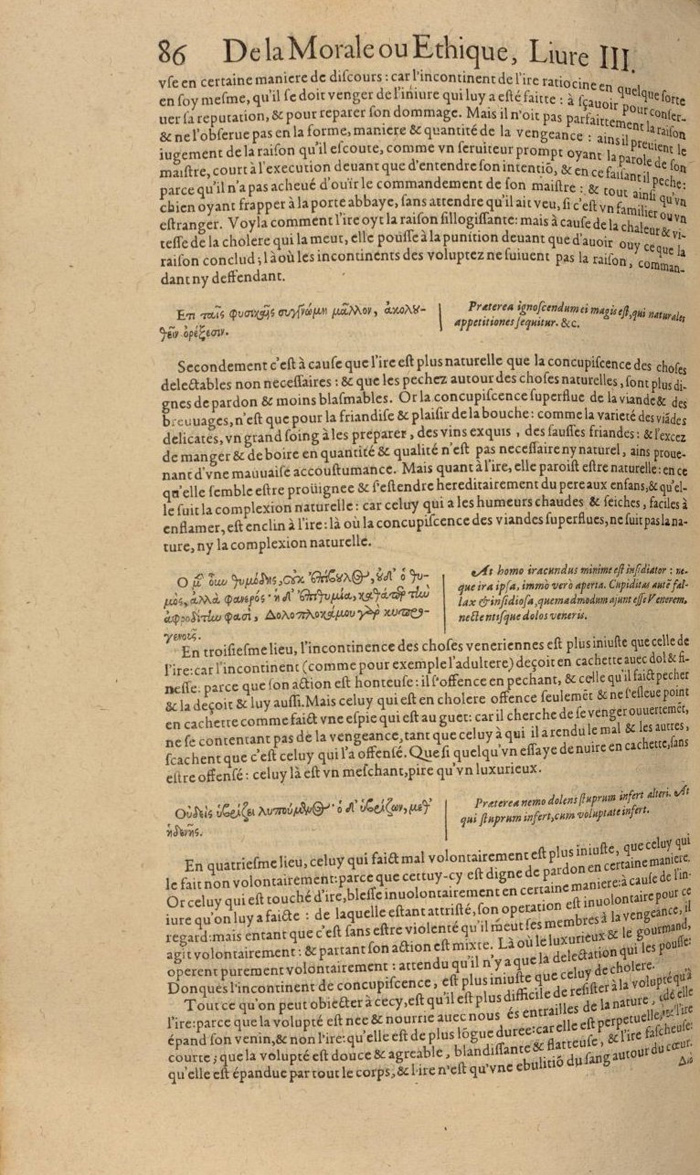 86 De la Morale ou Ethique, Liure III.
vſe en certaine maniere de diſcours : car l'incontinent de l'ire ratiocine en quelque ſorte
en ſoy meſme, qu'il ſe doit venger de l'iniure qui luy a eſté faitte : à ſçauoir pour conſer-
uer ſa reputation, & pour reparer ſon dommage. Mais il n'oit pas parfaittement la raiſon
& ne l'obſerue pas en la forme, maniere & quantité de la vengeance : ains il preuient le
iugement de la raiſon qu'il eſcoute, comme vn ſeruiteur prompt oyant la parole de ſon
maiſtre, court à l'execution deuant que d'entendre ſon intentiō, & en ce faiſant il peche:
parce qu'il n'a pas acheué d'ouïr le commandement de ſon maiſtre : & tout ainſi qu'vn
chien oyant frapper à la porte abbaye, ſans attendre qu'il ait veu, ſi c'eſt vn familier ou vn
eſtranger. Voyla comment l'ire oyt la raiſon ſillogiſſante: mais à cauſe de la chaleur & vi-
teſſe de la cholere qui la meut, elle pouſſe à la punition deuant que d'auoir ouy ce que la
raiſon conclud ; là où les incontinents des voluptez ne ſuiuent pas la raiſon, comman-
dant ny deffendant.
Ετι ταῖς φυσικαῖς συγγνώμη μᾶλλον, ἀκολου-
θεῖν ὀρέξεσιν.
Præterea ignoſcendum ei magis eſt, qui naturales
appetitiones ſequitur. &c.
Secondement c'eſt à cauſe que l'ire eſt plus naturelle que la concupiſcence des choſes
delectables non neceſſaires : & que les pechez autour des choſes naturelles, ſont plus di-
gnes de pardon & moins blaſmables. Or la concupiſcence ſuperflue de la viande & des
breuuages, n'eſt que pour la friandiſe & plaiſir de la bouche : comme la varieté des viādes
delicates, vn grand ſoing à les preparer, des vins exquis, des ſauſſes friandes : & l'excez
de manger & de boire en quantité & qualité n'eſt pas neceſſaire ny naturel, ains proue-
nant d'vne mauuaiſe accouſtumance. Mais quant à l'ire, elle paroiſt eſtre naturelle : en ce
qu'elle ſemble eſtre proüignee & s'eſtendre hereditairement du pere aux enfans, & qu'el-
le ſuit la complexion naturelle : car celuy qui a les humeurs chaudes & ſeiches, faciles à
enflamer, eſt enclin à l'ire : là où la concupiſcence des viandes ſuperflues, ne ſuit pas la na-
ture, ny la complexion naturelle.
Ο μὲν οὖν θυμώδης, οὐκ ἐπίβουλος, οὐδ' ὁ θυ-
μὸς, ἀλλὰ φανερός· ἡ δ' ἐπιθυμία, καθάπερ τὴν
ἀφροδίτην φασὶ, Δολοπλοκάμου γὰρ κυπρο-
γενοῦς.
At homo iracundus minime eſt inſidiator : ne-
que ira ipſa, immò verò aperta. Cupiditas autē fal-
lax & inſidioſa, quemadmodum aiunt eſſe Venerem,
nectentiſque dolos veneris.
En troiſieſme lieu, l'incontinence des choſes veneriennes eſt plus iniuſte que celle de
l'ire: car l'incontinent (comme pour exemple l'adultere) deçoit en cachette auec dol & fi-
neſſe : parce que ſon action eſt honteuſe : il s'offence en pechant, & celle qu'il faict pecher
& la deçoit & luy auſſi. Mais celuy qui eſt en cholere offence ſeulemēt & ne s'eſleue point
en cachette comme faict vne eſpie qui eſt au guet : car il cherche de ſe venger ouuertemēt,
ne ſe contentant pas de la vengeance, tant que celuy à qui il a rendu le mal & les autres,
ſcachent que c'eſt celuy qui l'a offenſé. Que ſi quelqu'vn eſſaye de nuire en cachette, ſans
eſtre offenſé : celuy là eſt vn meſchant, pire qu'vn luxurieux.
Οὐδεὶς ὑβρίζει λυπούμενος· ὁ δ' ὑβρίζων, μεθ'
ἡδονῆς.
Præterea nemo dolens ſtuprum infert alteri. At
qui ſtuprum infert, cum voluptate infert.
En quatrieſme lieu, celuy qui faict mal volontairement eſt plus iniuſte, que celuy qui
le fait non volontairement: parce que cettuy-cy eſt digne de pardon en certaine maniere.
Or celuy qui eſt touché d'ire, bleſſe inuolontairement en certaine maniere: à cauſe de l'in-
iure qu'on luy a faicte : de laquelle eſtant attriſté, ſon operation eſt inuolontaire pour ce
regard: mais entant que c'eſt ſans eſtre violenté qu'il meut ſes membres à la vengeance, il
agit volontairement : & partant ſon action eſt mixte. Là où le luxurieux & le gourmand,
operent purement volontairement : attendu qu'il n'y a que la delectation qui les pouſſe:
Donques l'incontinent de concupiſcence, eſt plus iniuſte que celuy de cholere.
Tout ce qu'on peut obiecter à cecy, eſt qu'il eſt plus difficile de reſiſter à la volupté qu'à
l'ire: parce que la volupté eſt nee & nourrie auec nous és entrailles de la nature, elle
épand ſon venin, & non l'ire: qu'elle eſt de plus lōgue duree: car elle eſt perpetuelle, l'ire
courte ; que la volupté eſt douce & agreable, blandiſſante & flatteuſe, & l'ire faſcheuſe:
qu'elle eſt épandue par tout le corps, & l'ire n'eſt qu'vne ebulitiō du ſang autour du cœur.